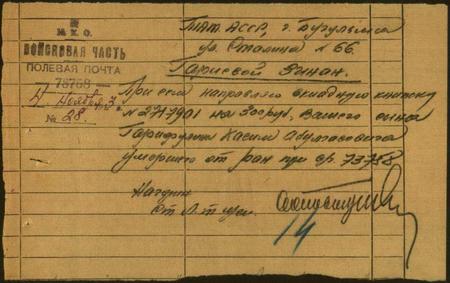 Н.К.О.
ВОЙСКОВАЯ ЧАСТЬ
ПОЛЕВАЯ ПОЧТА
73768
4 Ноября
№ 28.
Тат. АССР, г. Бугульма
ул. Сталина № 66.
Гариевой Зинан.
При сем направляю вкладную книжку
№ 2717901 на 300 руб, Вашего сына
Гарифуллин Касим
умершего от ран при п/п 73758
Начфин
Ст. Л-т
14